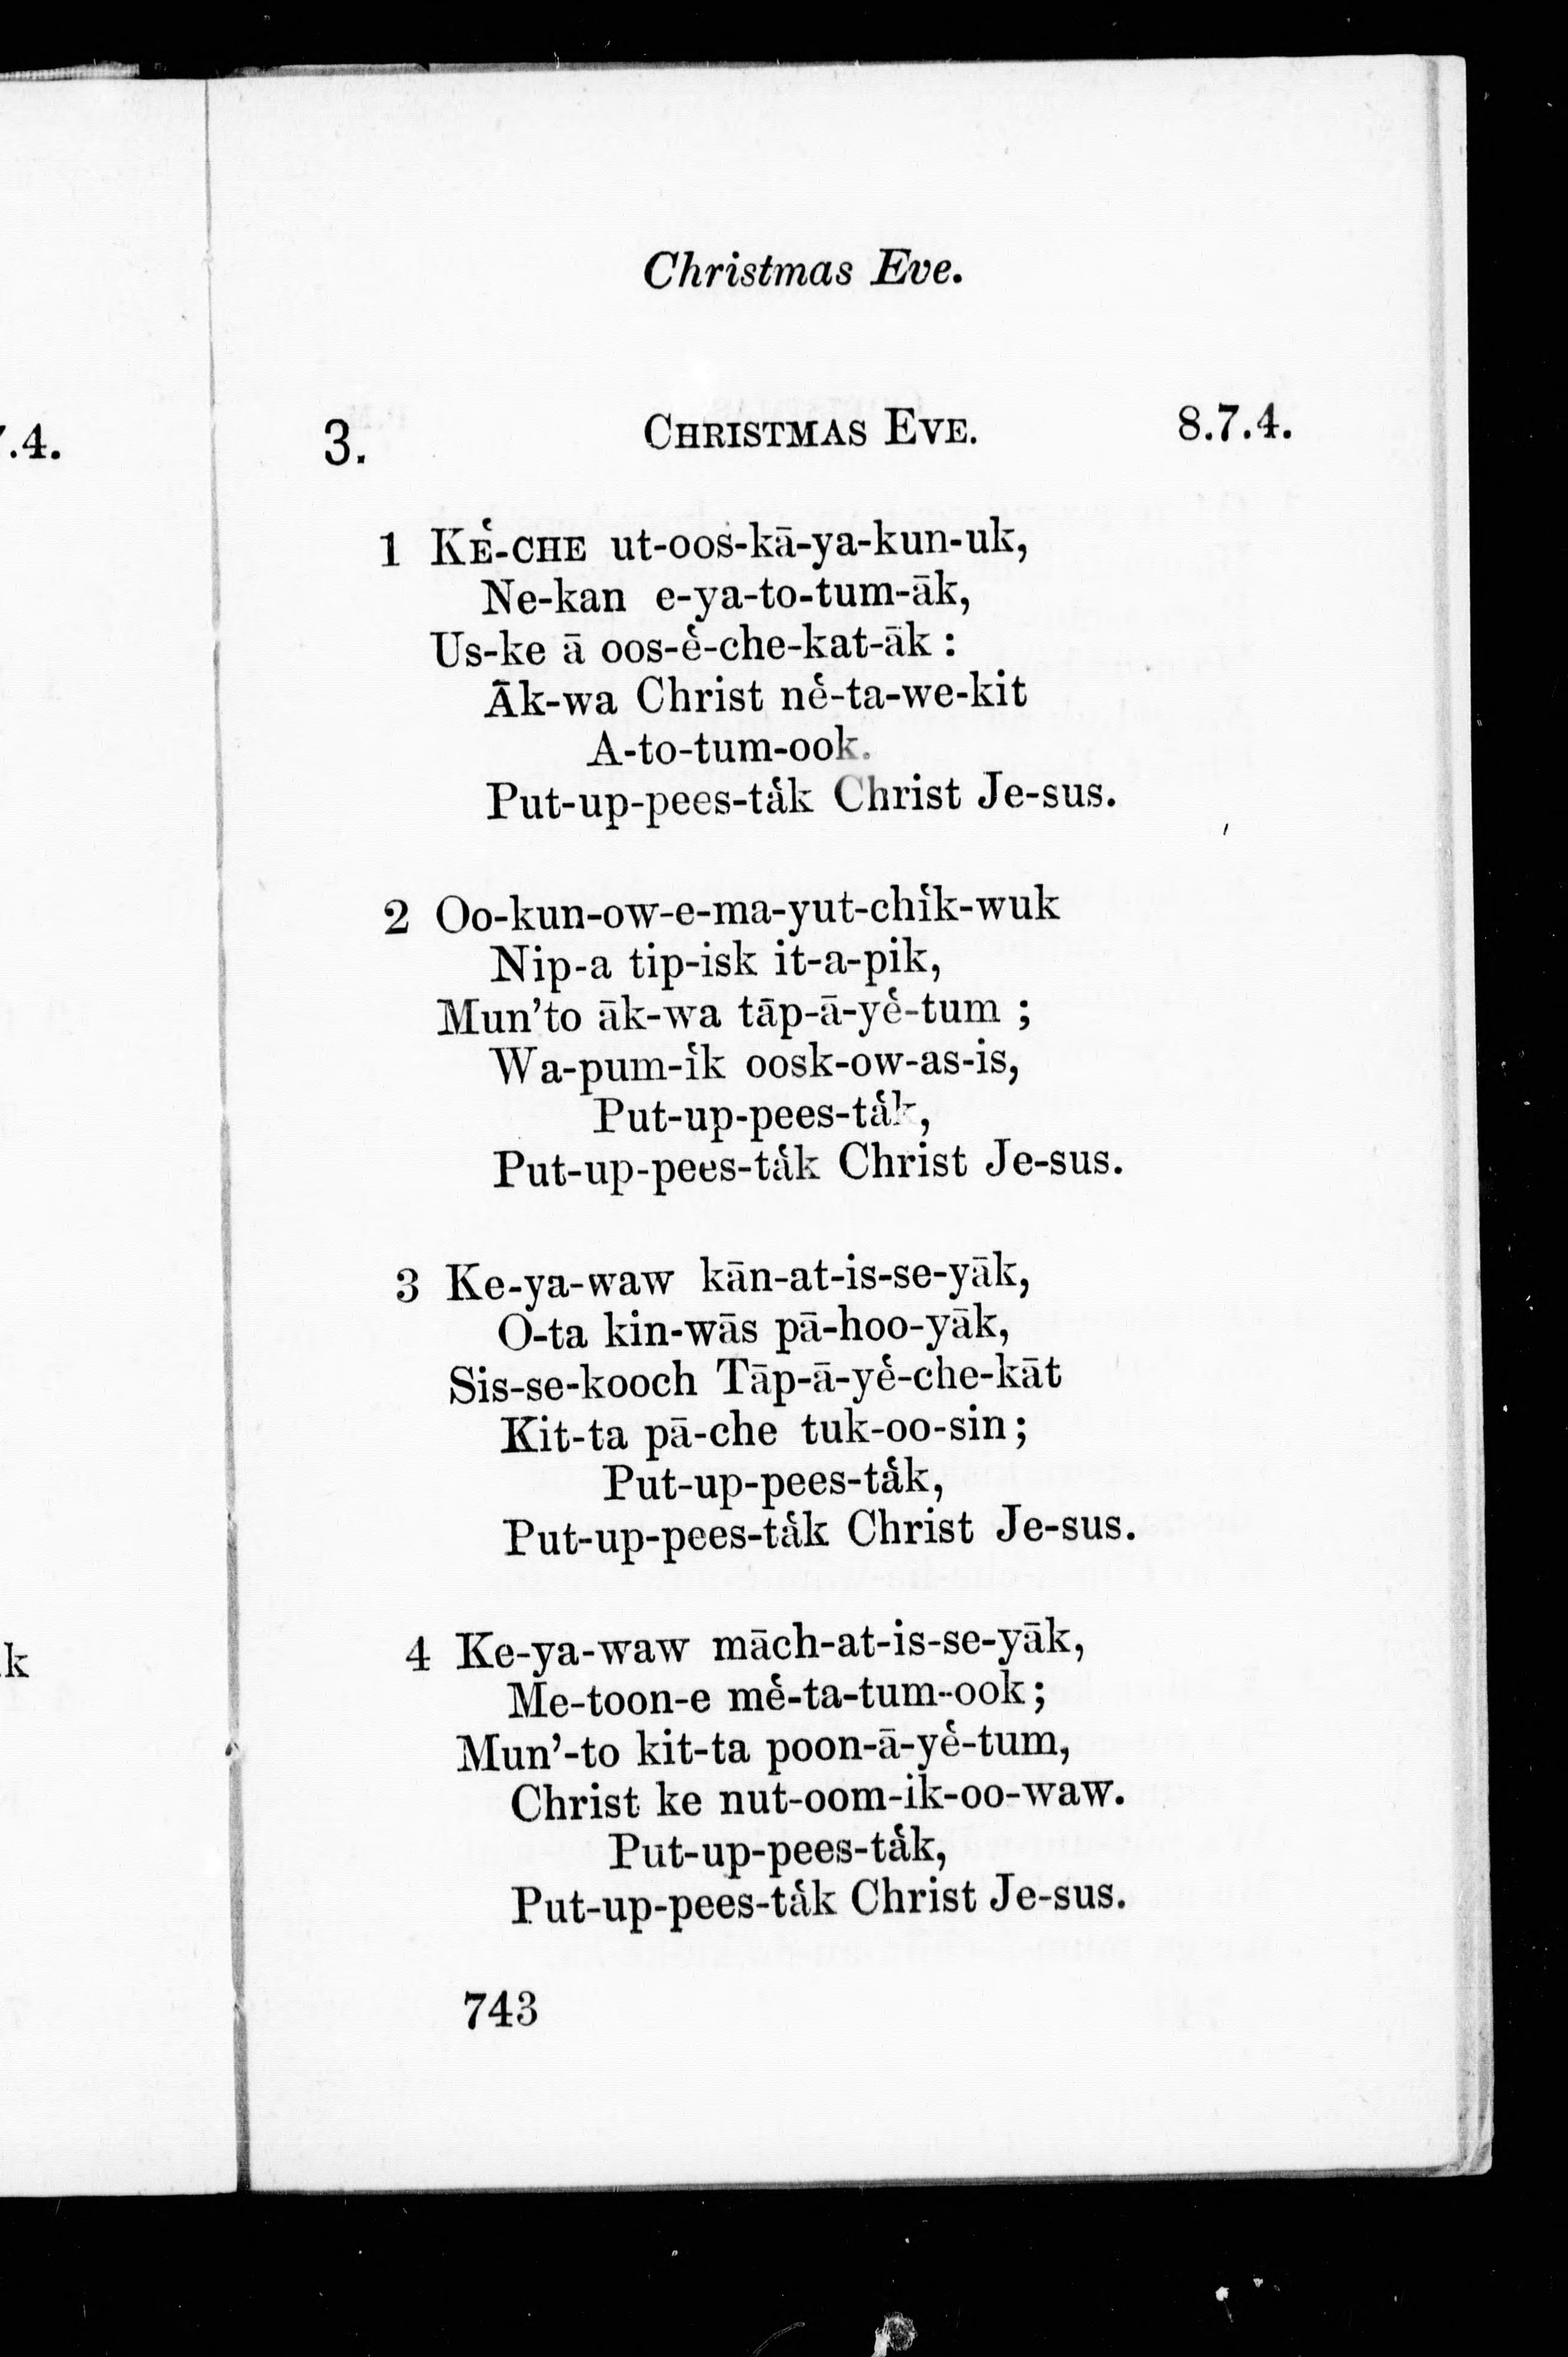 Christmas Eve.
3. CHRISTMAS EVE. 8.7.4.
1 KE̔-CHE ut-oos-kā-ya-kun-uk,
Ne-kan e-ya-to-tum-āk,
Us-ke ā oos-e̔-che-kat-āk :
Āk-wa Christ ne̔-ta-we-kit
A-to-tum-ook.
Put-up-pees-ta̔k Christ Je-sus.
2 Oo-kun-ow-e-ma-yut-chi̔k-wuk
Nip-a tip-isk it-a-pik,
Mun’to āk-wa tāp-ā-ye̔-tum ;
Wa-pum-i̔k oosk-ow-as-is,
Put-up-pees-ta̔k,
Put-up-pees-ta̔k Christ Je-sus.
3 Ke-ya-waw kān-at-is-se-yāk,
O-ta kin-wās pā-hoo-yāk,
Sis-se-kooch Tāp-ā-ye̔-che-kāt
Kit-ta pā-che tuk-oo-sin;
Put-up-pees-ta̔k,
Put-up-pees-ta̔k Christ Je-sus.
4 Ke-ya-waw māch-at-is-se-yāk,
Me-toon-e me̔-ta-tum-ook;
Mun’-to kit-ta poon-ā-ye̔-tum,
Christ ke nut-oom-ik-oo-waw.
Put-up-pees-ta̔k,
Put-up-pees-ta̔k Christ Je-sus.
743